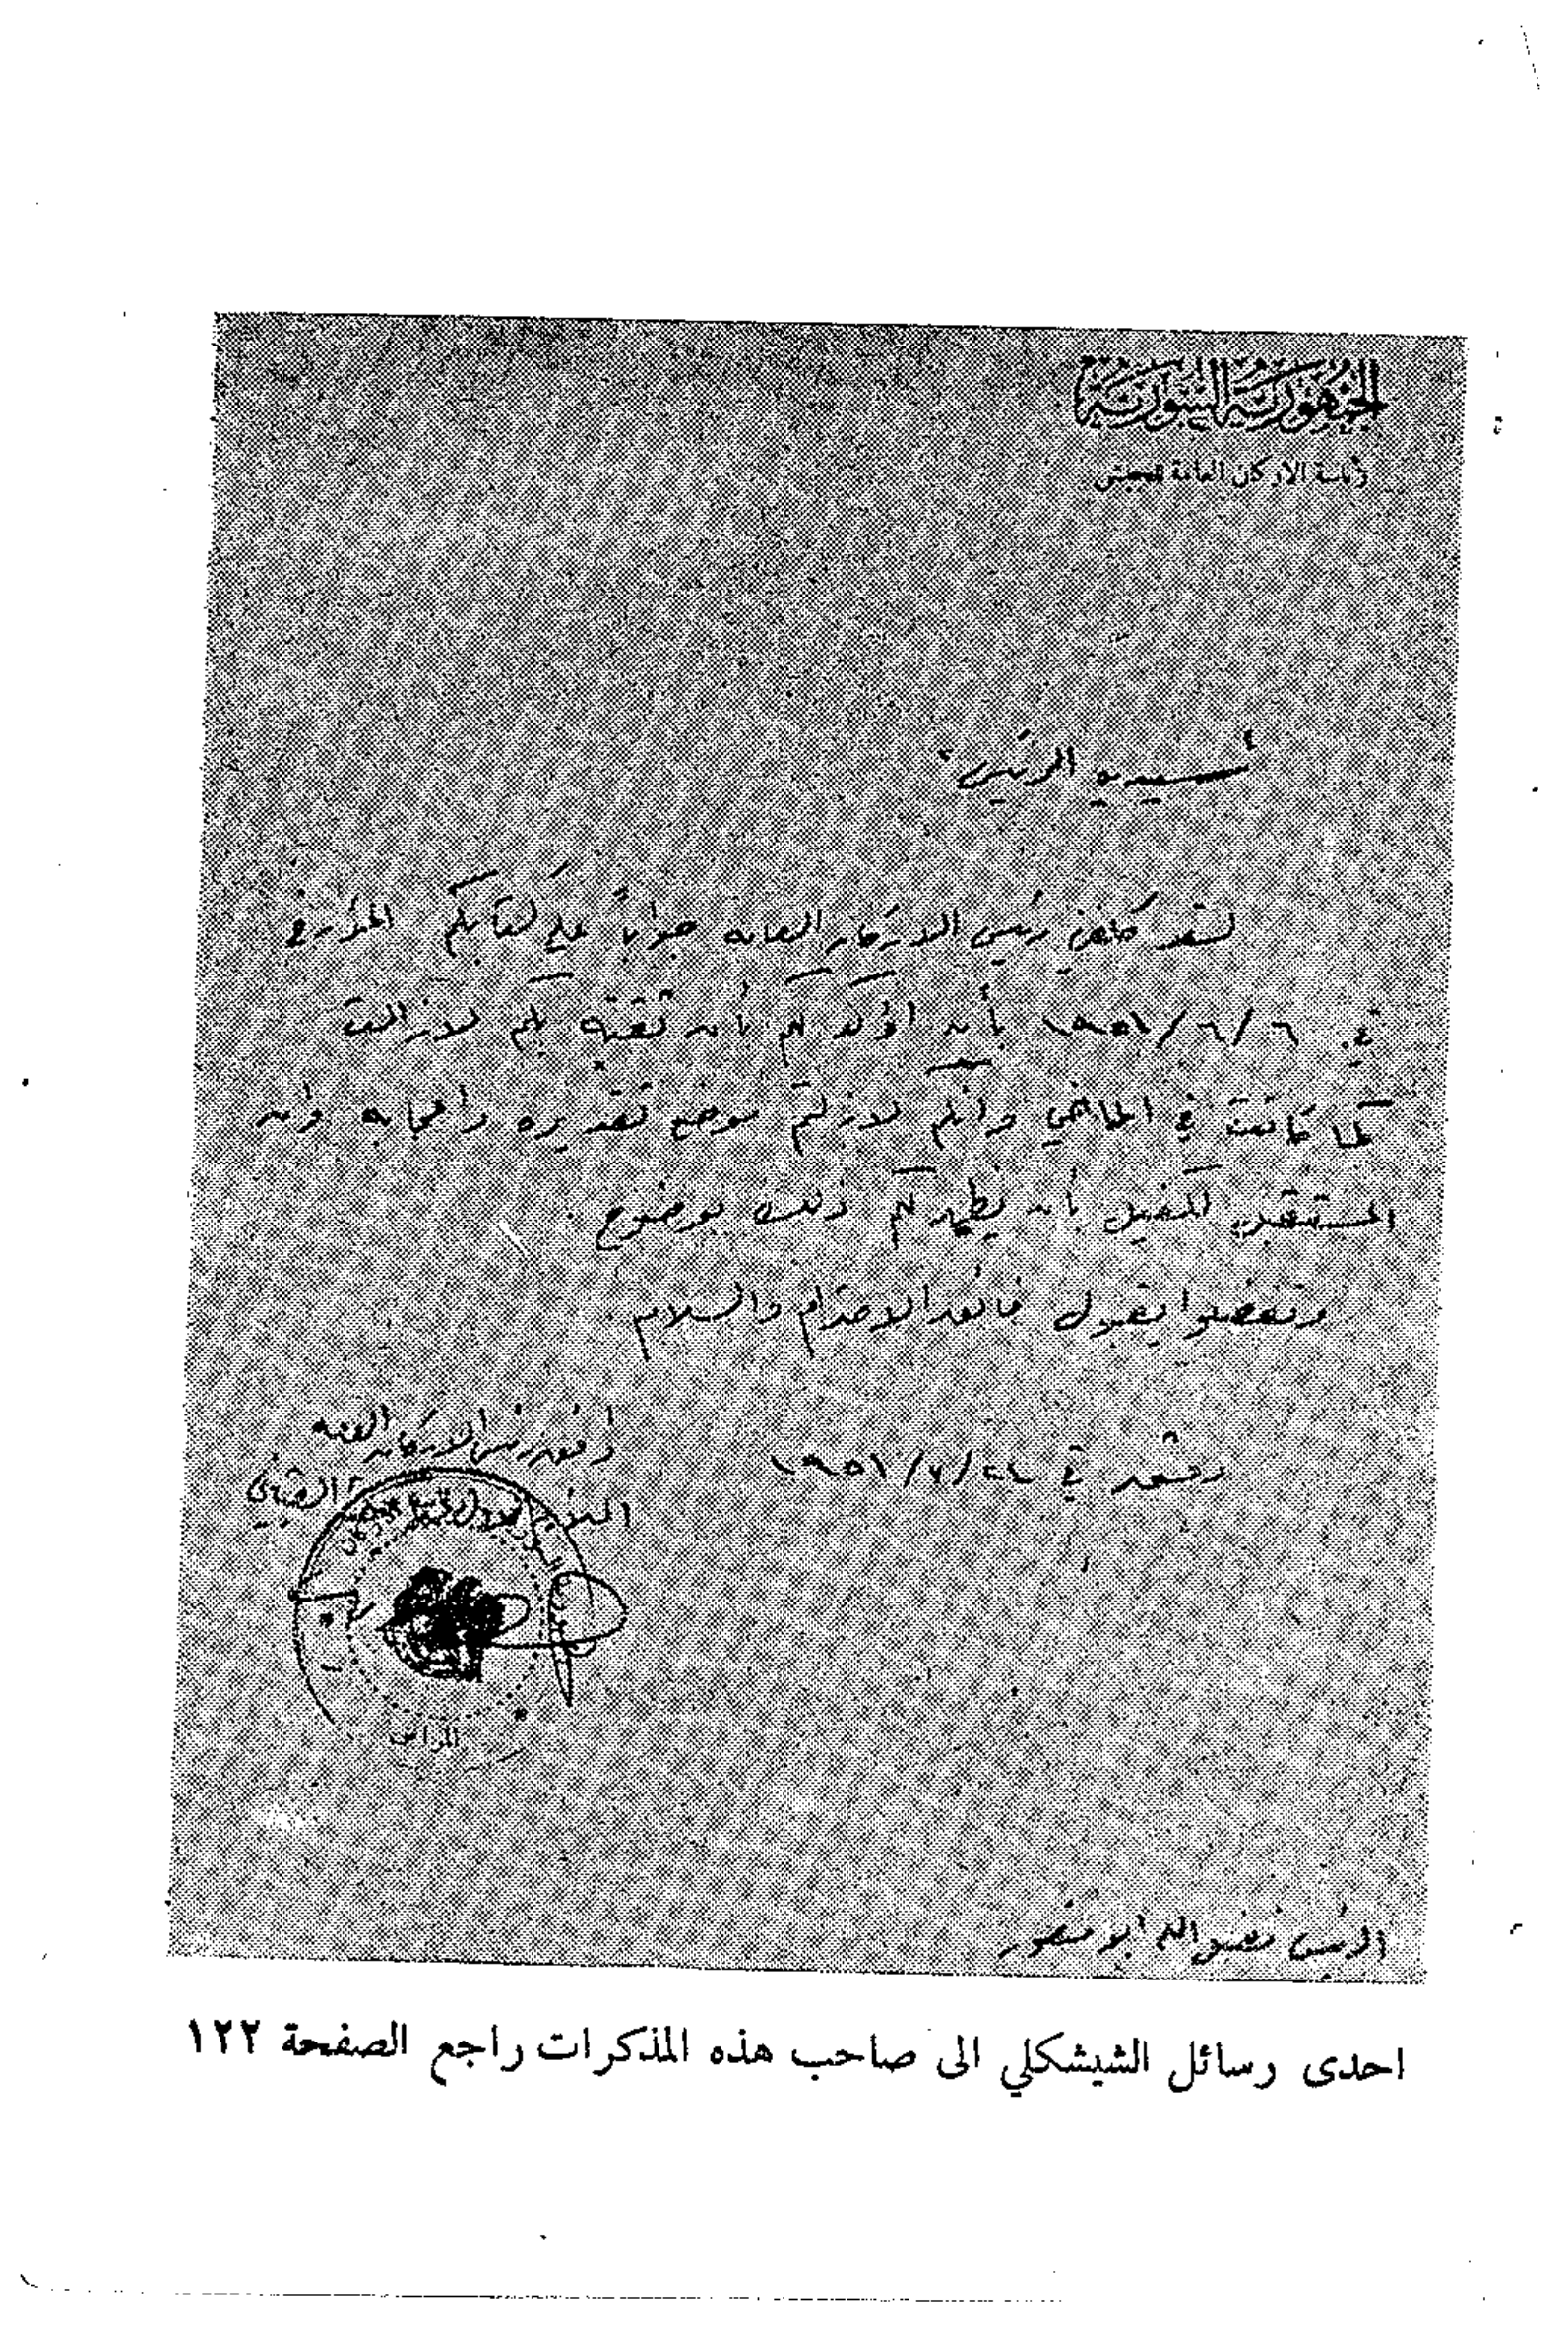 الجمهورية السورية
رئاسة الاركان العامة للجيش
سيدي الرئيس
لقد كلفني رئيس الاركان العامة جواباً على كتابكم المؤرخ
في ٦/٦/١٩٥١ بأن اؤكد لكم بأن ثقته بكم لازالت
كما كانت في الماضي وانكم لازلتم موضع تقديره واعجابه وان
المستقبل كفيل بأن يظهر لكم ذلك بوضوح .
وتفضلوا بقبول فائق الاحترام والسلام .
دمشق في ١٩٥١/٦/
رئيس الاركان العامة
المرافق
الرئيس فضل الله ابو منصور
احدى رسائل الشيشكلي الى صاحب هذه المذكرات راجع الصفحة ١٢٢